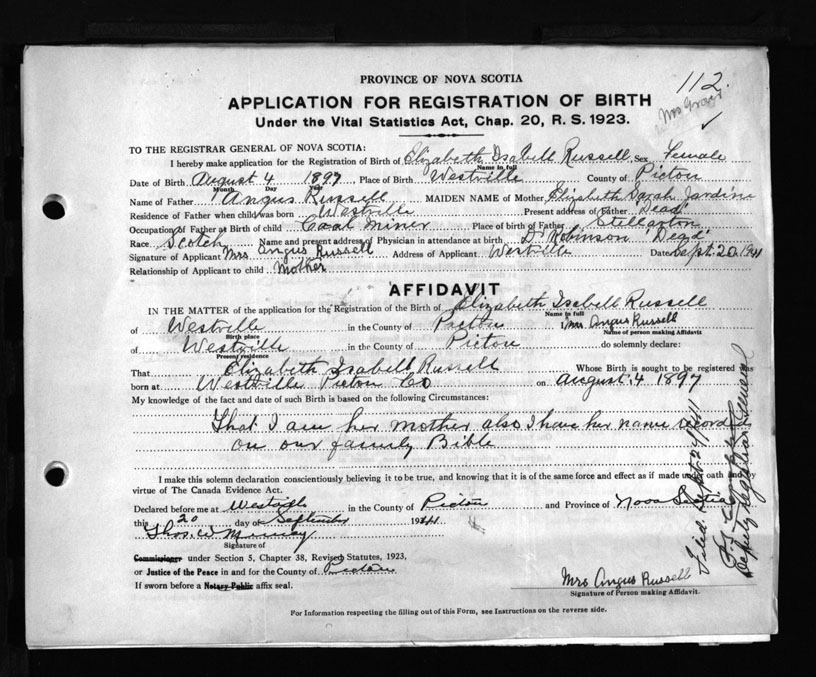 112.
PROVINCE OF NOVA SCOTIA
Mrs Grant
APPLICATION FOR REGISTRATION OF BIRTH
Under the Vital Statistics Act, Chap. 20, R. S. 1923.
TO THE REGISTRAR GENERAL OF NOVA SCOTIA:
I hereby make application for the Registration of Birth of Elizabeth Isabell Russell Sex Female
Name in full
Date of Birth August 4 1897 Place of Birth Westville County of Pictou
Month Day Year
Name of Father Angus Russell MAIDEN NAME of Mother Elizabeth Sarah Jardine
Residence of Father when child was born Westville Present address of Father Dead
Occupation of Father at Birth of child Coal Miner Place of birth of Father Stellarton
Race Scotch Name and present address of Physician in attendance at birth Dr Robinson "Dead"
Signature of Applicant Mrs. Angus Russell Address of Applicant Westville Date Sept. 20 1941
Relationship of Applicant to child Mother
AFFIDAVIT
IN THE MATTER of the application for the Registration of the Birth of Elizabeth Isabell Russell
Name in full
of Westville in the County of Pictou I, Mrs Angus Russell
Birth place Name of person making Affidavit
of Westville in the County of Pictou do solemnly declare:
Present residence
That Elizabeth Isabell Russell Whose Birth is sought to be registered was
born at Westville Pictou Co on August. 4 1897
My knowledge of the fact and date of such Birth is based on the following Circumstances:
That I am her mother also I have her name recorded
on our family Bible
I make this solemn declaration conscientiously believing it to be true, and knowing that it is of the same force and effect as if made under oath and by
virtue of The Canada Evidence Act.
Declared before me at Westville in the County of Pictou and Province of Nova Scotia
this 20 day of September 1941
Thos. W Murray
Signature of
Commissioner under Section 5, Chapter 38, Revised Statutes, 1923,
or Justice of the Peace in and for the County of Pictou
If sworn before a Notary Public affix seal.
Mrs Angus Russell
Signature of Person making Affidavit.
For Information respecting the filling out of this Form, see Instructions on the reverse side.
Filed Sept. 24/1941
Deputy Registrar General